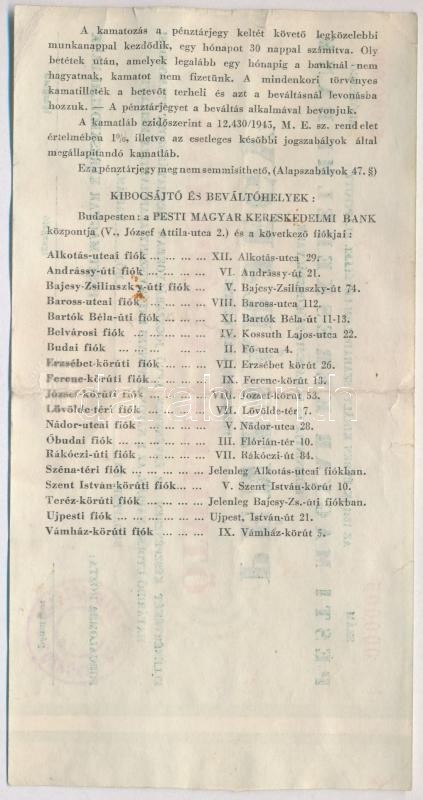 A kamatozás a pénztárjegy keltét követő legközelebbi
munkanappal kezdődik, egy hónapot 30 nappal számítva. Oly
betétek után, amelyek legalább egy hónapig a banknál nem
hagyatnak, kamatot nem fizetünk. A mindenkori törvényes
kamatilleték a betevőt terheli és azt a beváltásnál levonásba
hozzuk. — A pénztárjegyet a beváltás alkalmával bevonjuk.
A kamatláb ezidőszerint a 12.430/1945, M. E. sz. rendelet
értelmében 1%, illetve az esetleges későbbi jogszabályok által
megállapítandó kamatláb.
Ez a pénztárjegy meg nem semmisíthető, (Alapszabályok 47. §)
KIBOCSÁJTÓ ÉS BEVÁLTÓHELYEK :
Budapesten: a PESTI MAGYAR KERESKEDELMI BANK
központja (V., József Attila-utca 2.) és a következő fiókjai :
Alkotás-utcai fiók ... ... ... ... XII. Alkotás-utca 29.
Andrássy-úti fiók ... ... ... ... VI. Andrássy-út 21.
Bajcsy-Zsilinszky-úti fiók ... V. Bajcsy-Zsilinszky-út 74.
Baross-utcai fiók ... ... ... ... VIII. Baross-utca 112.
Bartók Béla-úti fiók ... ... ... XI. Bartók Béla-út 11-13.
Belvárosi fiók ... ... ... ... IV. Kossuth Lajos-utca 22.
Budai fiók ... ... ... ... II. Fő-utca 4.
Erzsébet-körúti fiók ... ... ... VII. Erzsébet körút 26.
Ferenc-körúti fiók ... ... ... ... IX. Ferenc-körút 13.
József-körúti fiók ... ... ... ... VIII. József-körút 53.
Lövölde-téri fiók ... ... ... ... VII. Lövölde-tér 7.
Nádor-utcai fiók ... ... ... ... V. Nádor-utca 28.
Óbudai fiók ... ... ... ... ... III. Flórián-tér 10.
Rákóczi-úti fiók ... ... ... ... VII. Rákóczi-út 84.
Széna-téri fiók ... ... ... ... Jelenleg Alkotás-utcai fiókban.
Szent István-körúti fiók... ... V. Szent István-körút 10.
Teréz-körúti fiók ... ... ... ... Jelenleg Bajcsy-Zs.-úti fiókban.
Ujpesti fiók ... ... ... ... ... Ujpest, István-út 21.
Vámház-körúti fiók ... ... ... IX. Vámház-körút 5.